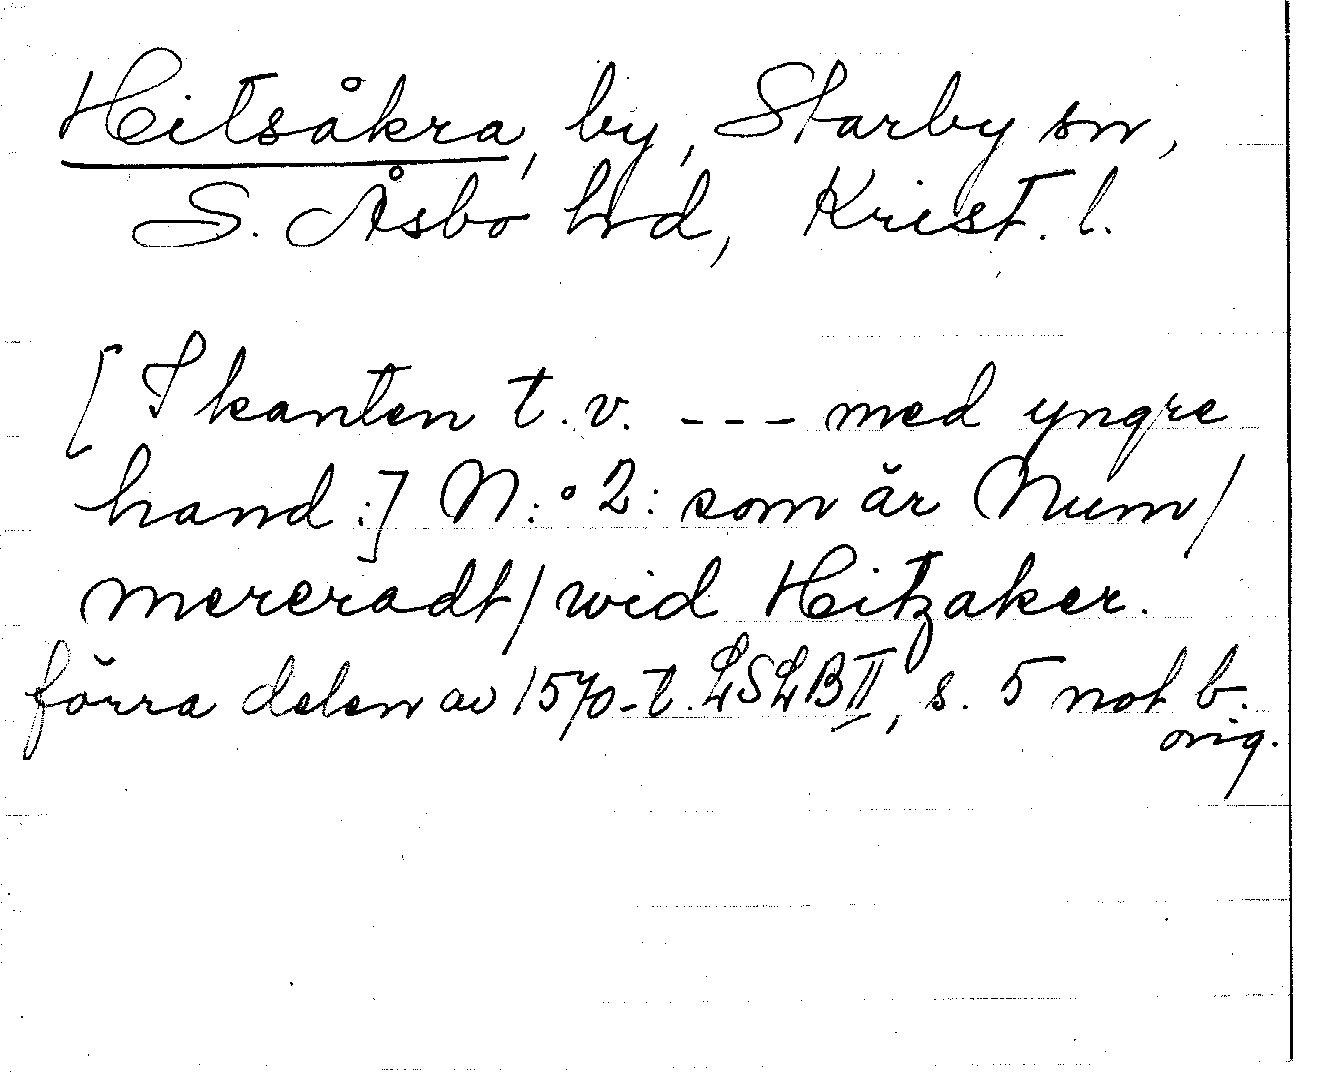 Hitsåkra, by, Starby sn,
S. Åsbo hd, Krist. l.
[I kanten t.v. --- med yngre
hand:] N:o 2: som är Num/
mereradt/wid Hitzaker.
förra delen av 1570-t. LSLB II, s. 5 not b.
orig.